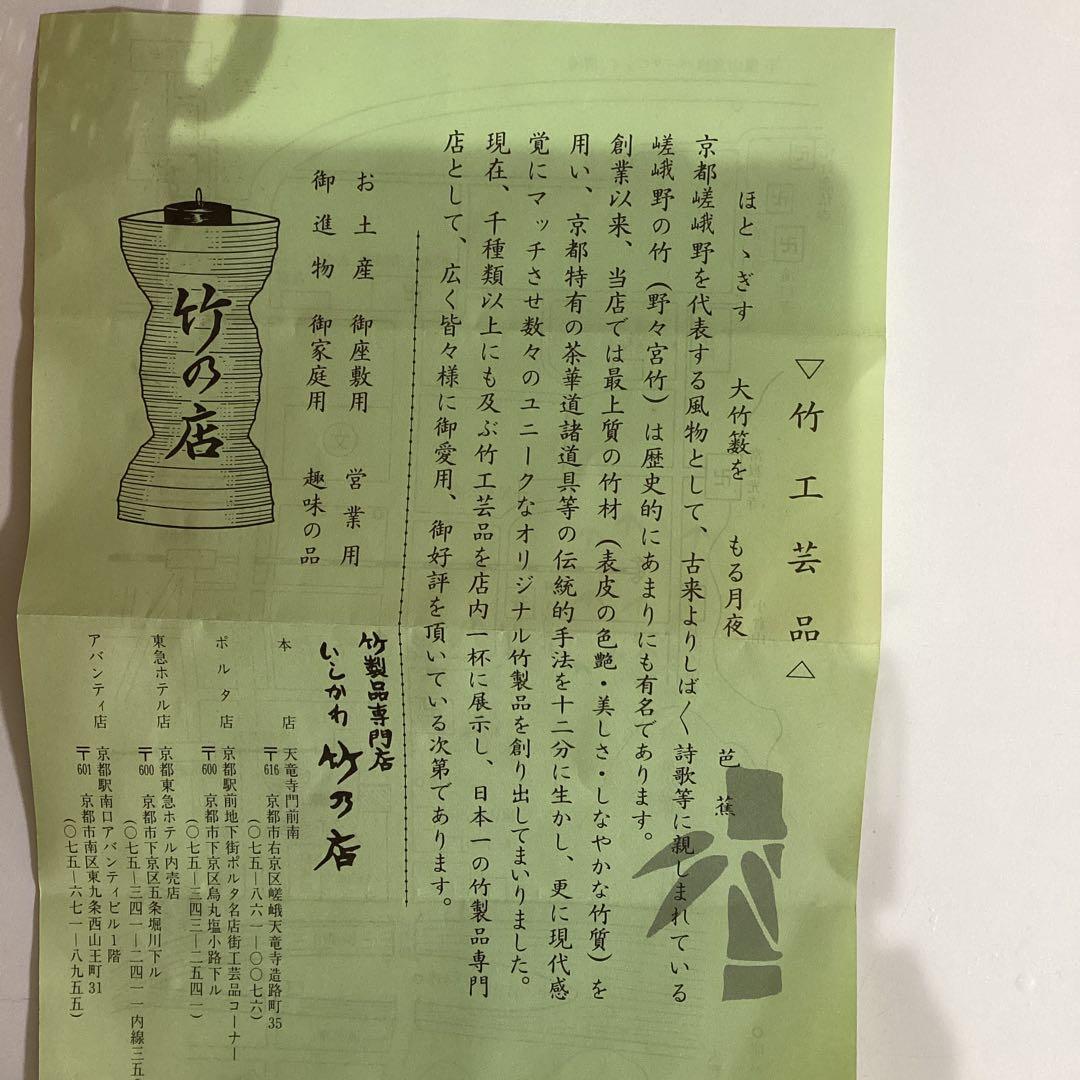 ▽竹工芸品△
ほとゝぎす 大竹籔を もる月夜 芭蕉
京都嵯峨野を代表する風物として、古来よりしば〱詩歌等に親しまれている
嵯峨野の竹(野々宮竹)は歴史的にあまりにも有名であります。
創業以来、当店では最上質の竹材(表皮の色艶・美しさ・しなやかな竹質)を
用い、京都特有の茶華道諸道具等の伝統的手法を十二分に生かし、更に現代感
覚にマッチさせ数々のユニークなオリジナル竹製品を創り出してまいりました。
現在、千種類以上にも及ぶ竹工芸品を店内一杯に展示し、日本一の竹製品専門
店として、広く皆々様に御愛用、御好評を頂いている次第であります。
お土産 御座敷用 営業用
御進物 御家庭用 趣味の品
竹乃店
竹製品専門店
いしかわ 竹乃店
本店 天竜寺門前南
〒616 京都市右京区嵯峨天竜寺造路町35
(〇七五―八六一―〇〇七六)
ポルタ店 京都駅前地下街ポルタ名店街工芸品コーナー
〒600 京都市下京区烏丸塩小路下ル
(〇七五―三四三―二五四一)
東急ホテル店 京都東急ホテル内売店
〒600 京都市下京区五条堀川下ル
(〇七五―三四一―二四一一 内線三五
アバンティ店 京都駅南口アバンティビル1階
〒601 京都市南区東九条西山王町31
(〇七五―六七一―八九五五)